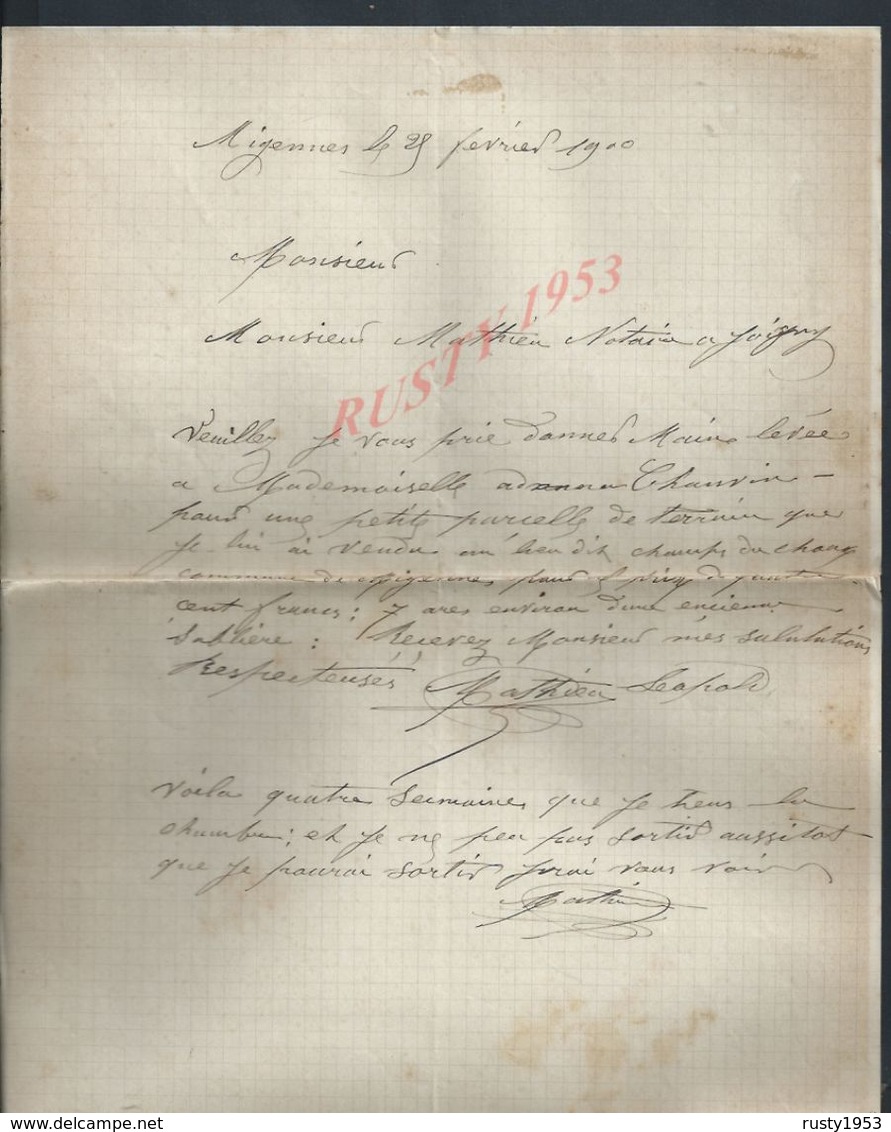 Migennes le 25 février 1900
Monsieur
RUSTY 1953
Monsieur Mathieu Notaire a Joigny
Veuillez je vous prie donner Main levée
a Mademoiselle Chauvin
pour une petite parcelle de terrain que
je lui ai vendu au lieu dit champs du
commune de Migennes pour le prix de quatre
cent francs; 7 ares environ d'une encienne
Sablière : Recevez Monsieur mes salutations
Respecteuses Mathieu Leopold
Voila quatre Semaines que je tiens la
chambre; et je ne peu pas sortir aussitot
que je pourai sortir jirai vous voir
Mathieu
delcampe.net
rusty1953